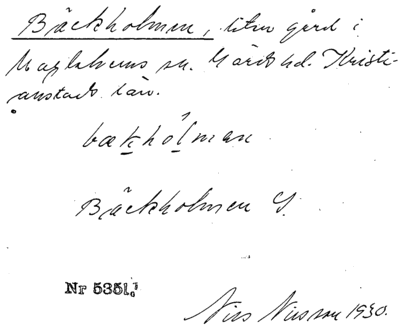 Bäckholmen, liten gård i
Maglehems sn. Gärds hd. Kristi-
anstads län.
bækhólman
Bäckholmen G.
Nr 5351.
Nils Nilsson 1930.